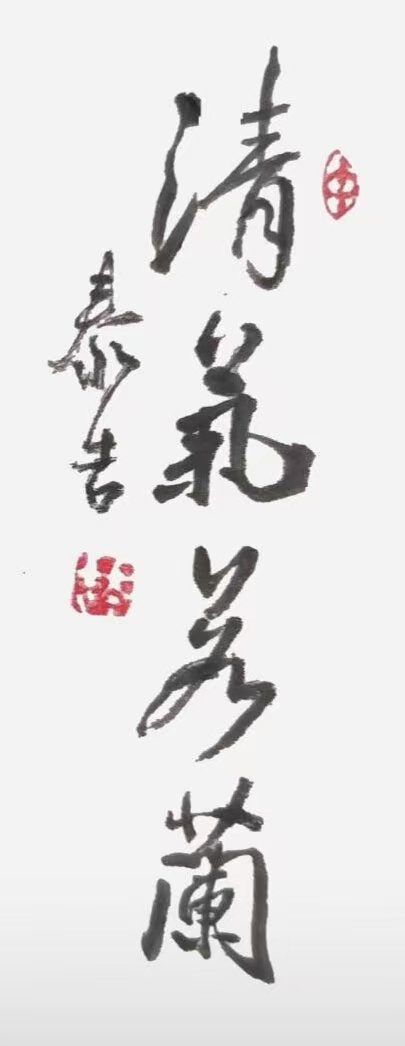 清氣若蘭
泰吉